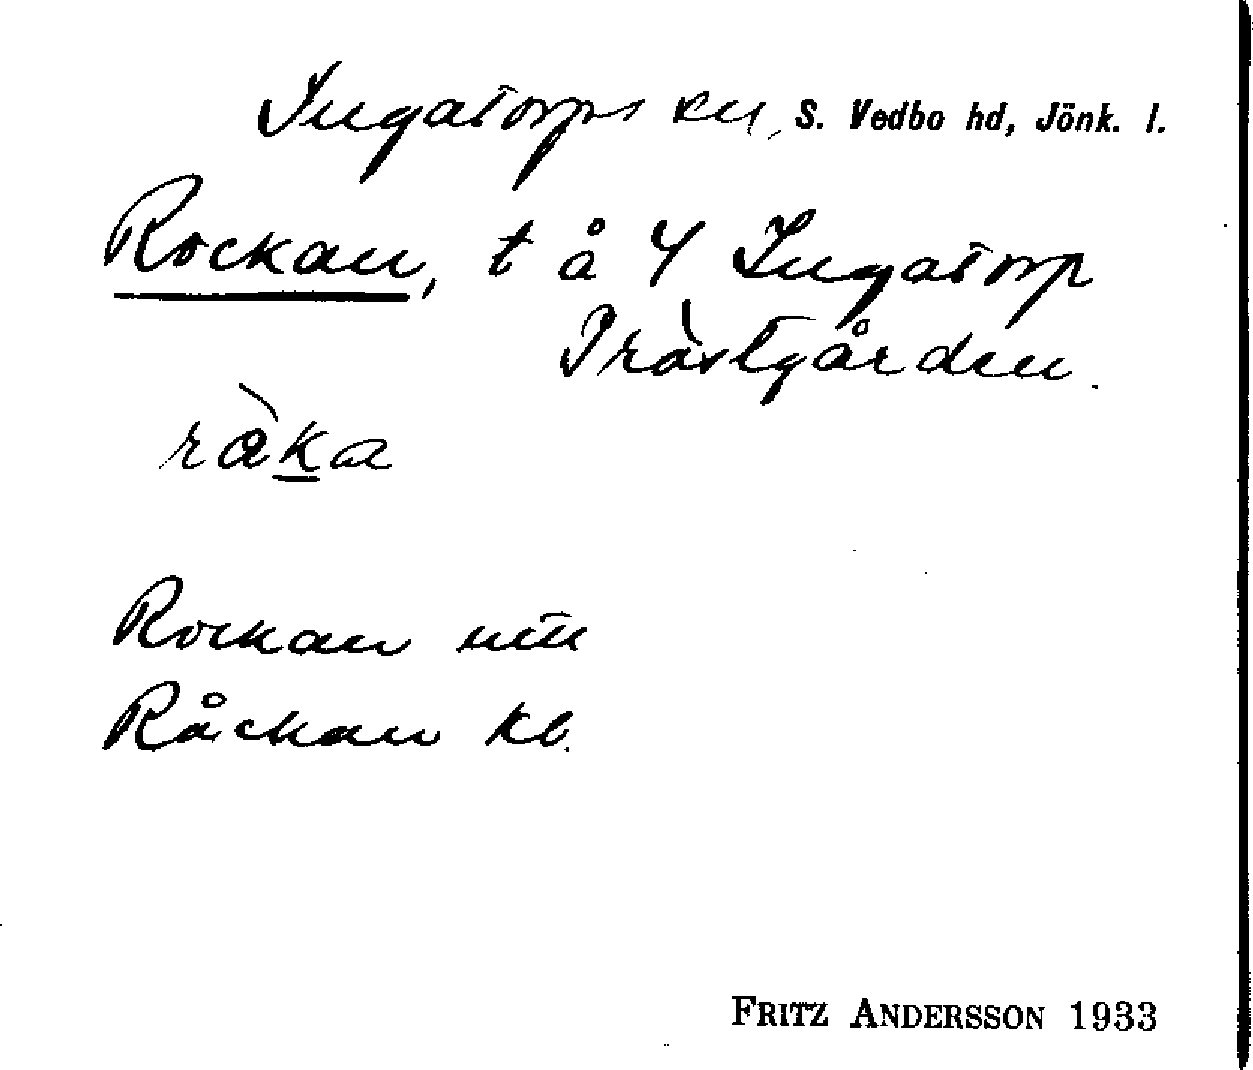 Ingatorps sn, S. Vedbo hd, Jönk. l.
Rockan, t å 4 Ingatorp
Prästgården.
ràka
Rockan utt
Råckan kb.
FRITZ ANDERSSON 1933